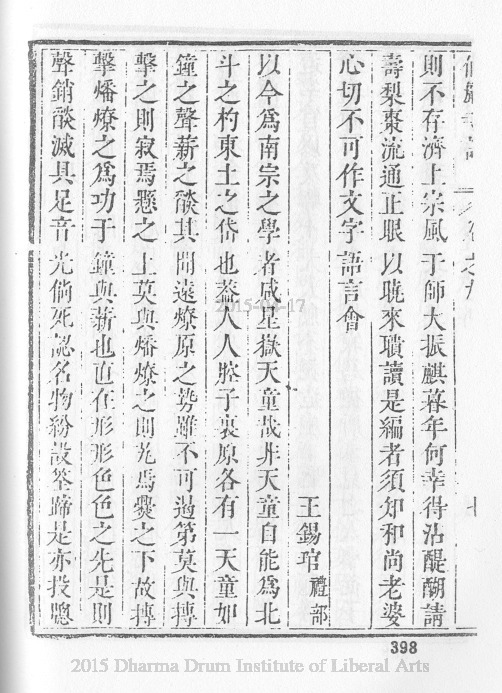 七
則不存濟上宗風于師大振麒暮年何幸得沾醍醐請
壽梨棗流通正眼以曉來聵讀是編者須知和尚老婆
心切不可作文字語言會
王錫琯禮部
以今爲南宗之學者咸星嶽天童哉非天童自能爲北
斗之杓東土之岱也葢人人胯子裏原各有一天童如
鐘之聲薪之燄其聞遠燎原之勢雖不可遏第莫與摶
擊之則寂焉懸之上莫與燔燎之則光焉爨之下故摶
擊燔燎之爲功于鐘與薪也直在形形色色之先是則
聲銷燄滅具足音光倘死認名物紛設筌蹄是亦投牕
398
2015 Dharma Drum Institute of Liberal Arts